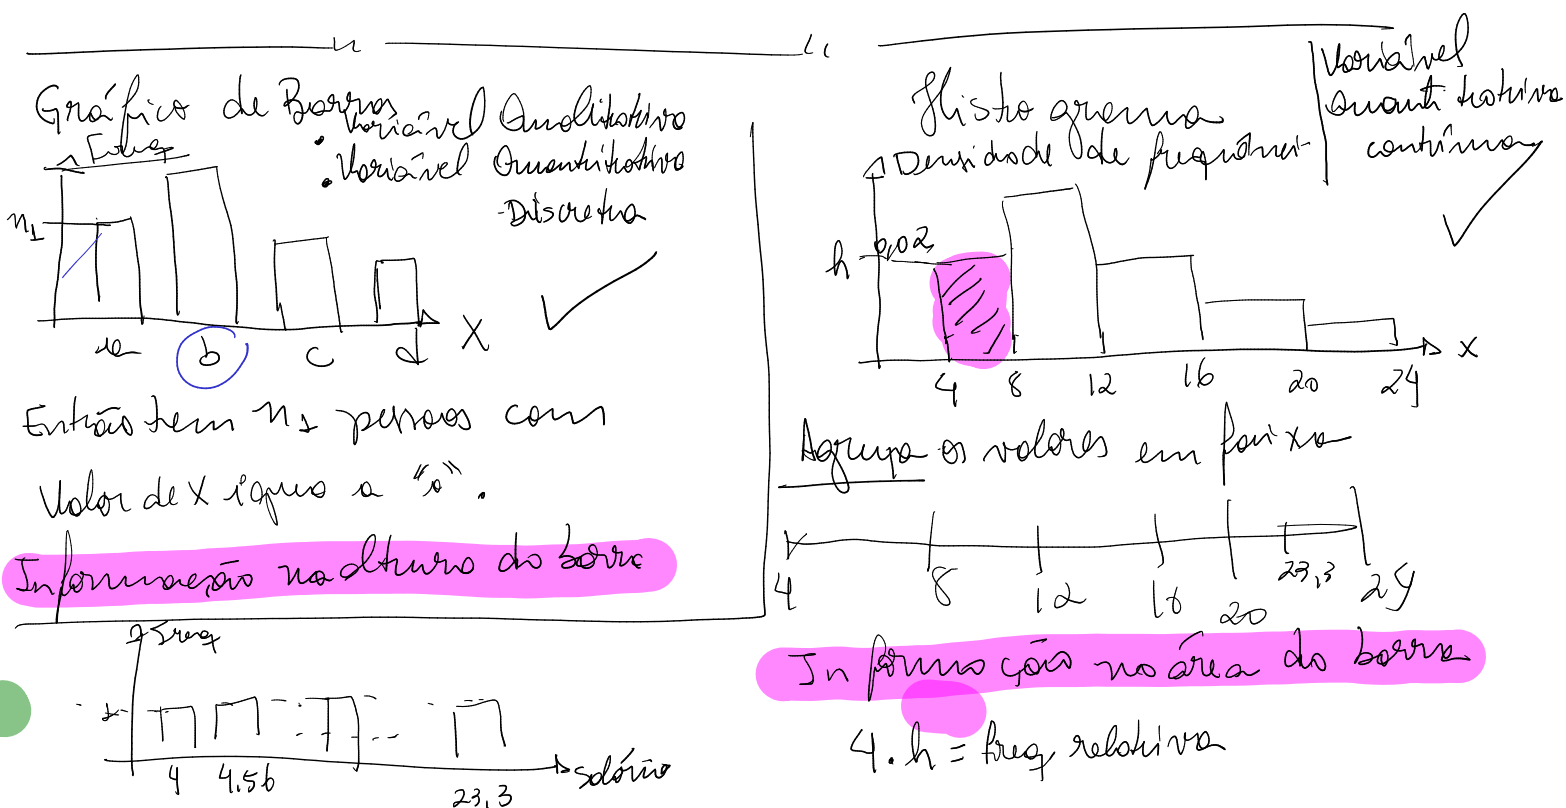 Gráfico de Barras
• Variável Qualitativa
• Variável Quantitativa
- Discreta
Freq
n1
a b c d X
Então tem n1 pessoas com
Valor de X igual a "a".
Informação na altura da barra
Freq
1
4 4.56 23,3
salário
Histograma
Variável
Quantitativa
contínua
Densidade de frequênci
h 0,02
4 8 12 16 20 24 X
Agrupa os valores em faixa
4 8 12 16 20 23,3 24
Informação na área da barra
4.h = freq relativa